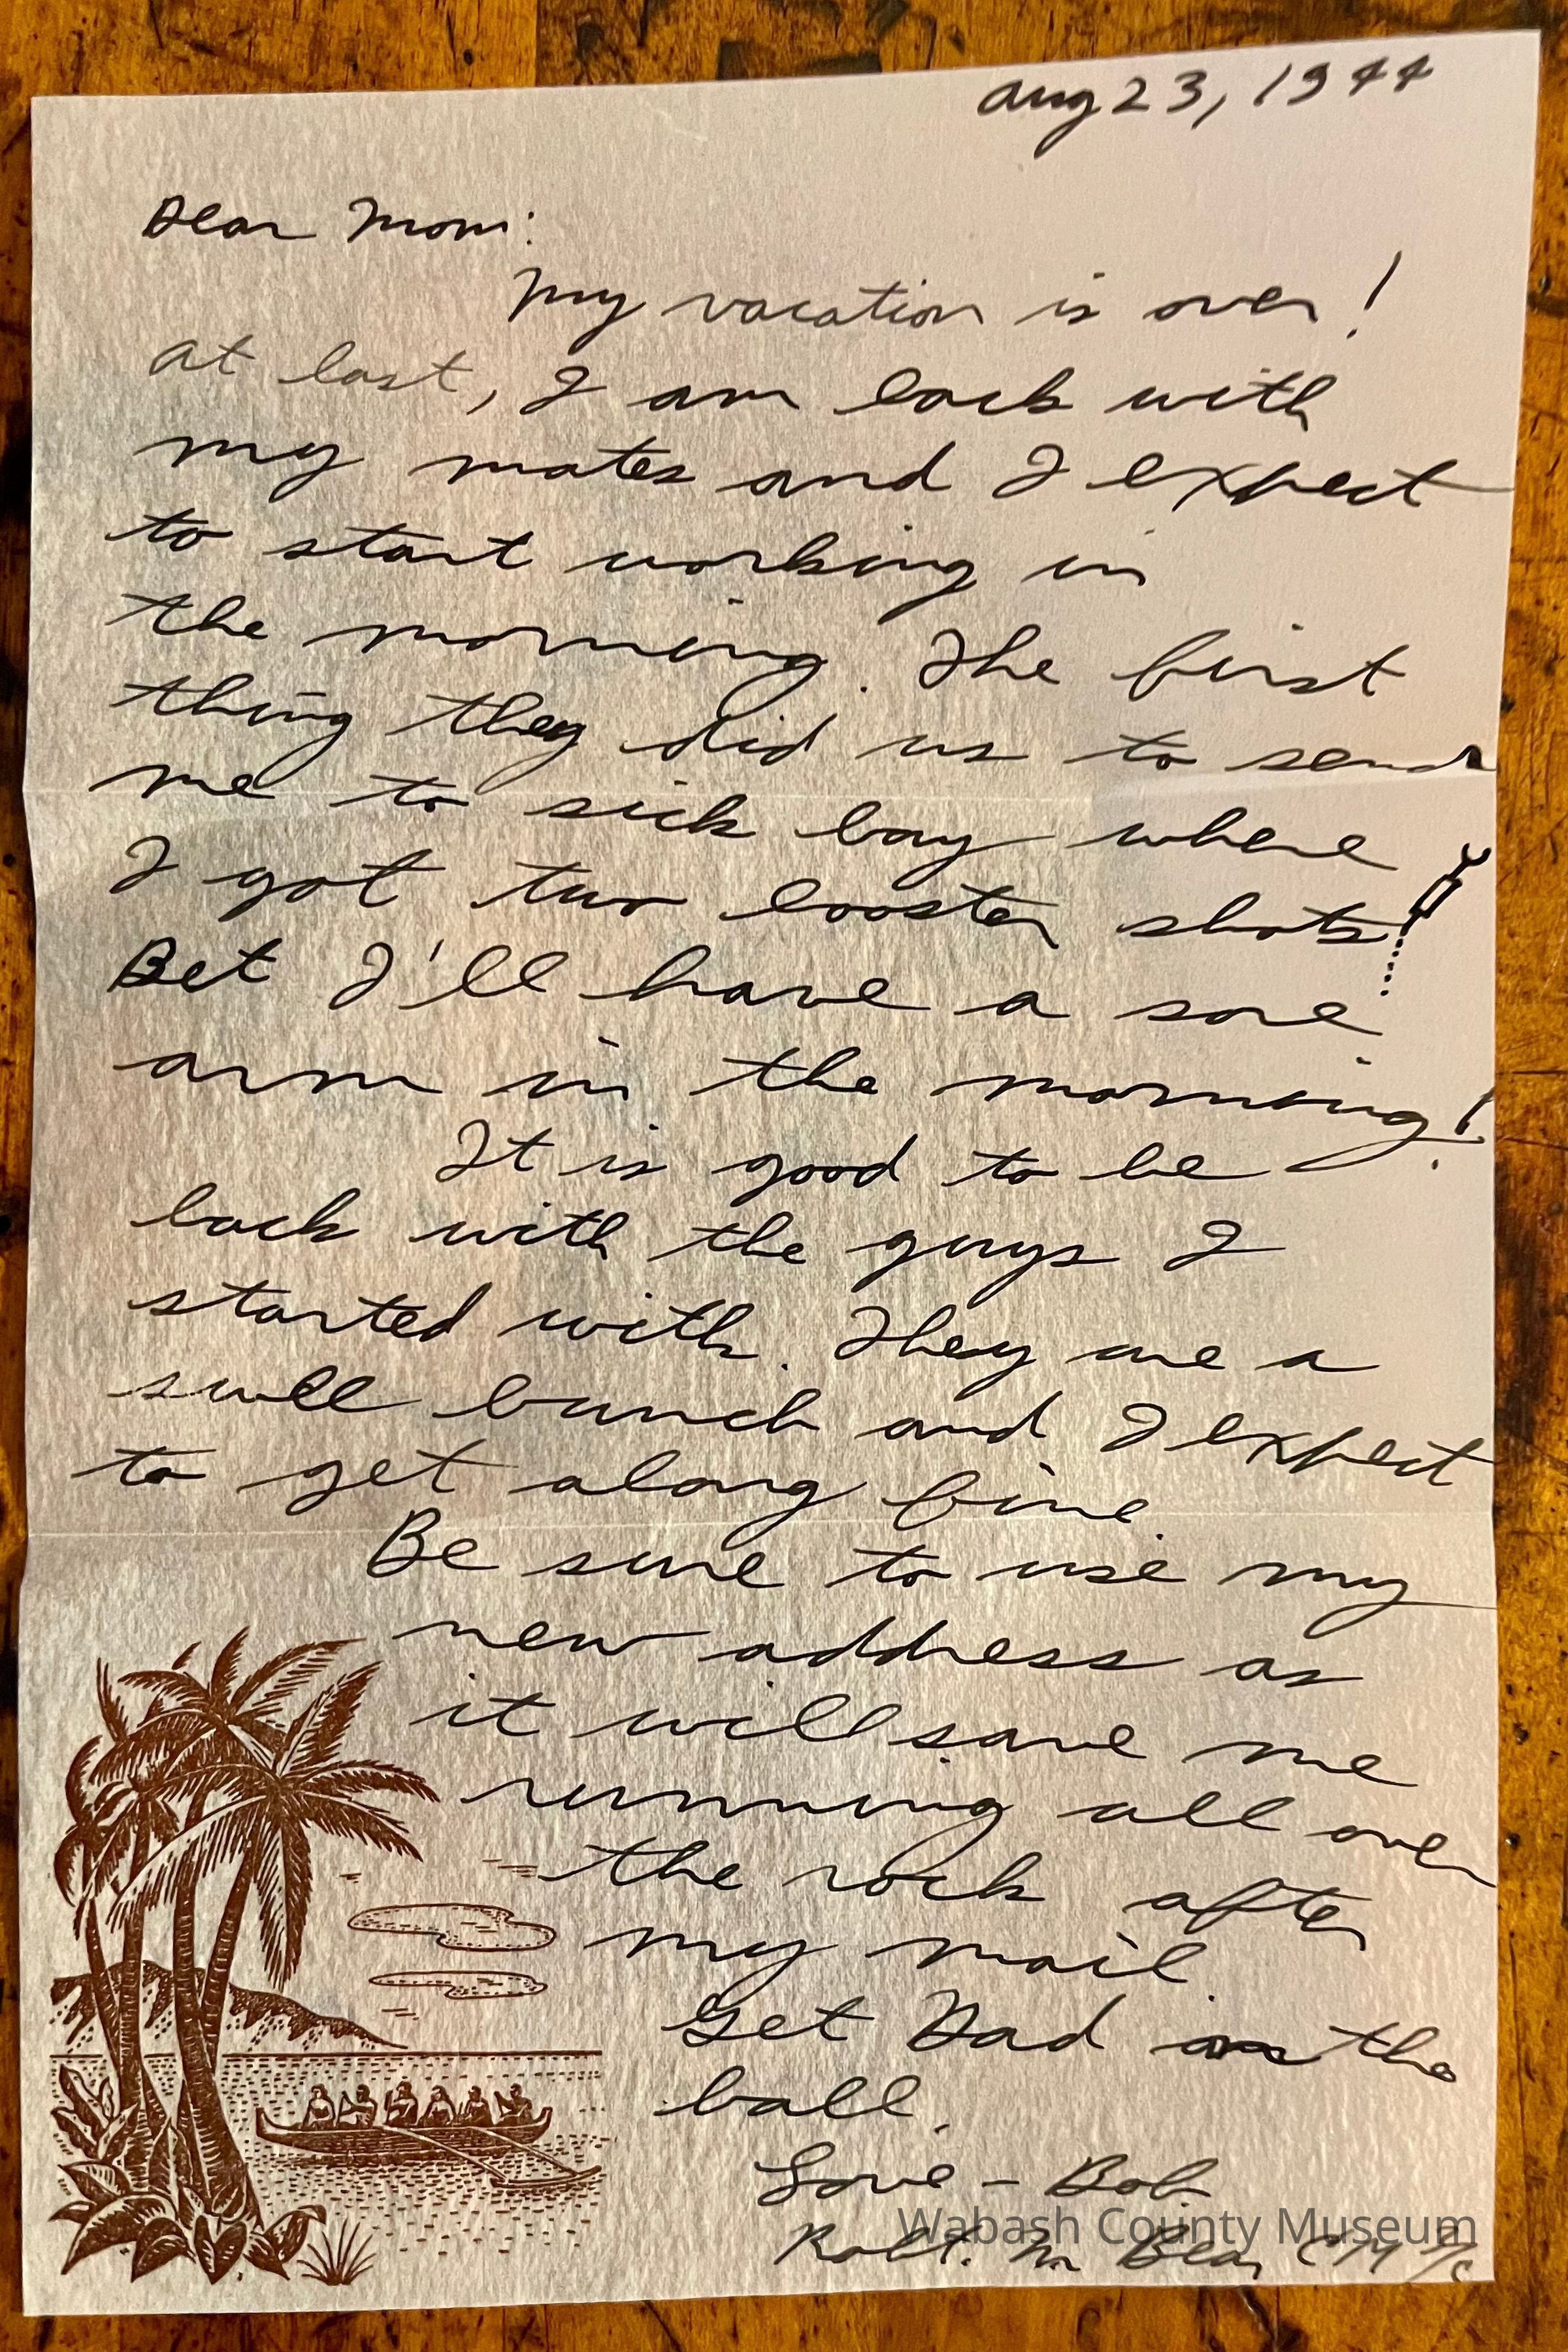 Aug 23, 1944
Dear Mom:
My vacation is over!
At last, I am back with
my mates and I expect
to start working in
the morning. The first
thing they did us to send
me to sick bay where
I got two booster shots!
Bet I'll have a sore
arm in the morning!
It is good to be
back with the guys I
started with. They are a
swell bunch and I expect
to get along fine.
Be sure to use my
new address as
it will save me
running all over
the rock after
my mail.
Get Dad on the
ball.
Love - Bob
Robt. M Bear CM
Wabash County Museum